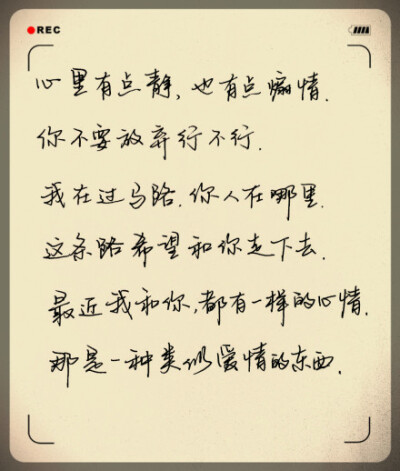 REC
心里有点静，也有点煽情.
你不要放弃行不行.
我在过马路.你人在哪里.
这条路希望和你走下去.
最近我和你,都有一样的心情.
那是一种类似爱情的东西.